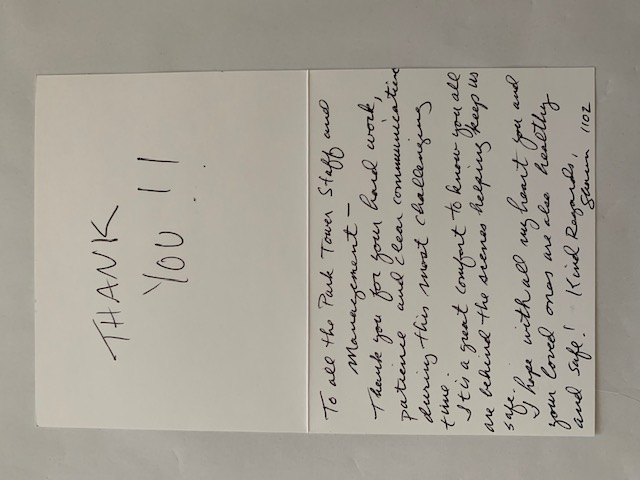 THANK
YOU !!
To all the Park Tower Staff and
Management –
Thank you for your hard work,
patience and clear communication
during this most challenging
time.
It is a great comfort to know you all
are behind the scenes helping keep us
safe.
I hope with all my heart you and
your loved ones are also healthy
and safe! Kind Regards,
1102